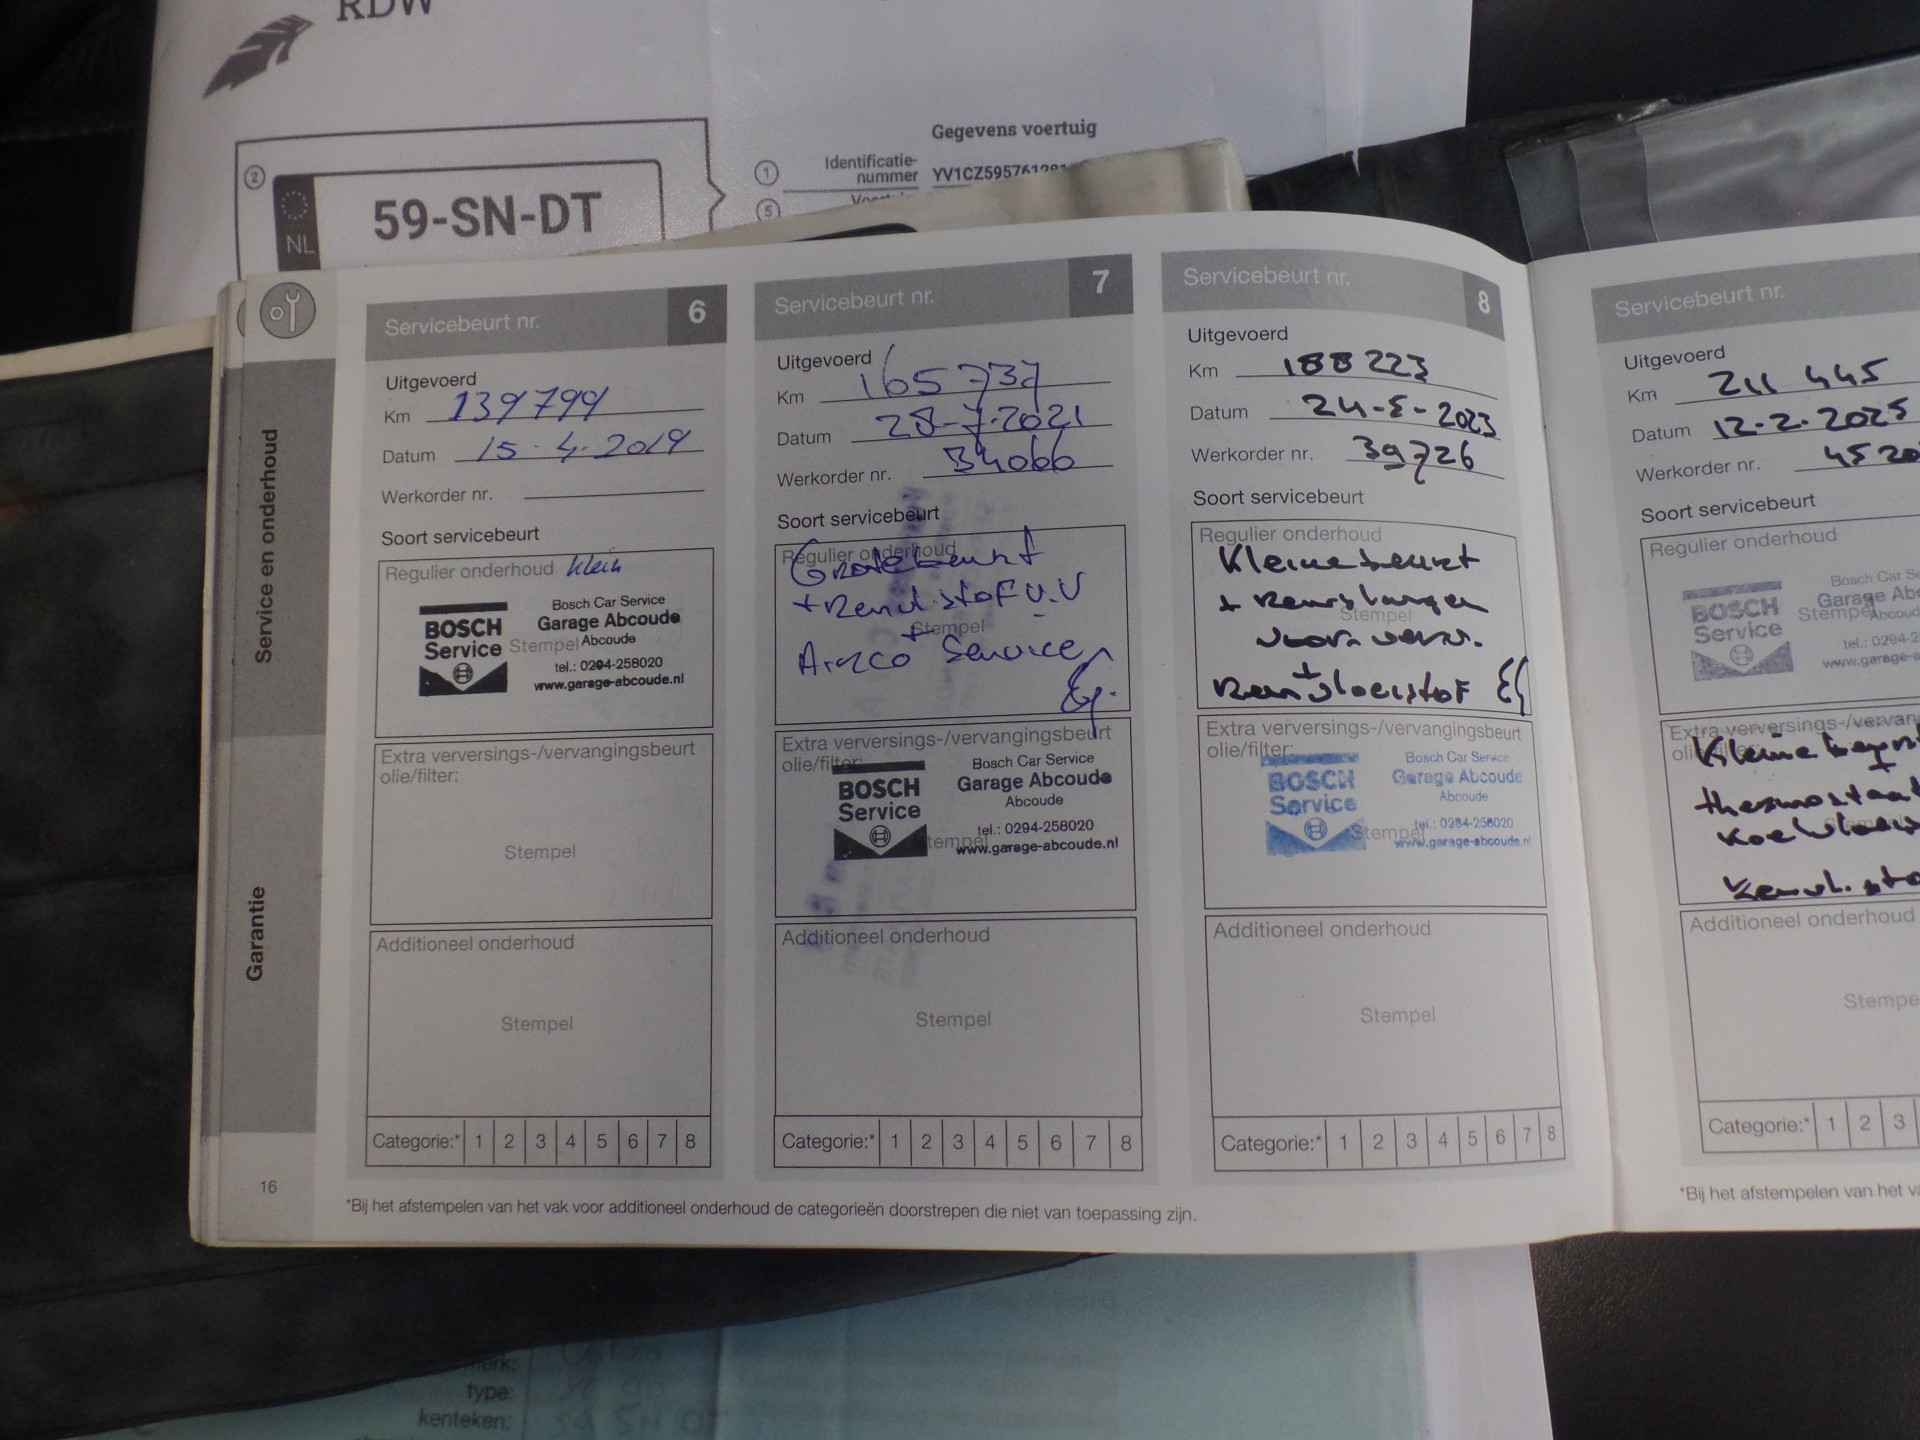 RDW
Gegevens voertuig
2
NL
59-SN-DT
1 Identificatie-
nummer YV1CZ595761281
5
Service en onderhoud
Garantie
16
Servicebeurt nr. 6
Uitgevoerd
Km 139799
Datum 15-4-2019
Werkorder nr.
Soort servicebeurt
Regulier onderhoud klein
BOSCH
Service
Bosch Car Service
Garage Abcoude
Stempel Abcoude
tel.: 0294-258020
www.garage-abcoude.nl
Extra verversings-/vervangingsbeurt
olie/filter:
Stempel
Additioneel onderhoud
Stempel
Categorie:* 1 2 3 4 5 6 7 8
Servicebeurt nr. 7
Uitgevoerd
Km 165737
Datum 28-7-2021
Werkorder nr. 34066
Soort servicebeurt
Regulier onderhoud
Grote beurt
+ Remvl.stof V.V
Stempel
+
Airco Service
Extra verversings-/vervangingsbeurt
olie/filter:
BOSCH
Service
Bosch Car Service
Garage Abcoude
Abcoude
tel.: 0294-258020
www.garage-abcoude.nl
Additioneel onderhoud
Stempel
Categorie:* 1 2 3 4 5 6 7 8
Servicebeurt nr. 8
Uitgevoerd
Km 188223
Datum 24-5-2023
Werkorder nr. 39726
Soort servicebeurt
Regulier onderhoud
Kleine beurt
+ Remslangen
Stempel
voor verv.
+
Remvloeistof
Extra verversings-/vervangingsbeurt
olie/filter:
BOSCH
Service
Bosch Car Service
Garage Abcoude
Abcoude
Stempel
tel.: 0294-258020
www.garage-abcoude.nl
Additioneel onderhoud
Stempel
Categorie:* 1 2 3 4 5 6 7 8
*Bij het afstempelen van het vak voor additioneel onderhoud de categorieën doorstrepen die niet van toepassing zijn.
Servicebeurt nr.
Uitgevoerd
Km 211 445
Datum 12-2-2025
Werkorder nr. 4520
Soort servicebeurt
Regulier onderhoud
BOSCH
Service
Bosch Car Se
Garage Abc
Stempel Abcoude
tel.: 0294-2
www.garage-abcou
Extra verversings-/vervan
Kleine beurt
+
thermostaat
koelvloeis
Remvl.sto
Additioneel onderhoud
Stempe
Categorie:* 1 2 3
*Bij het afstempelen van het va
merk:
type:
kenteken: 59 SN DT